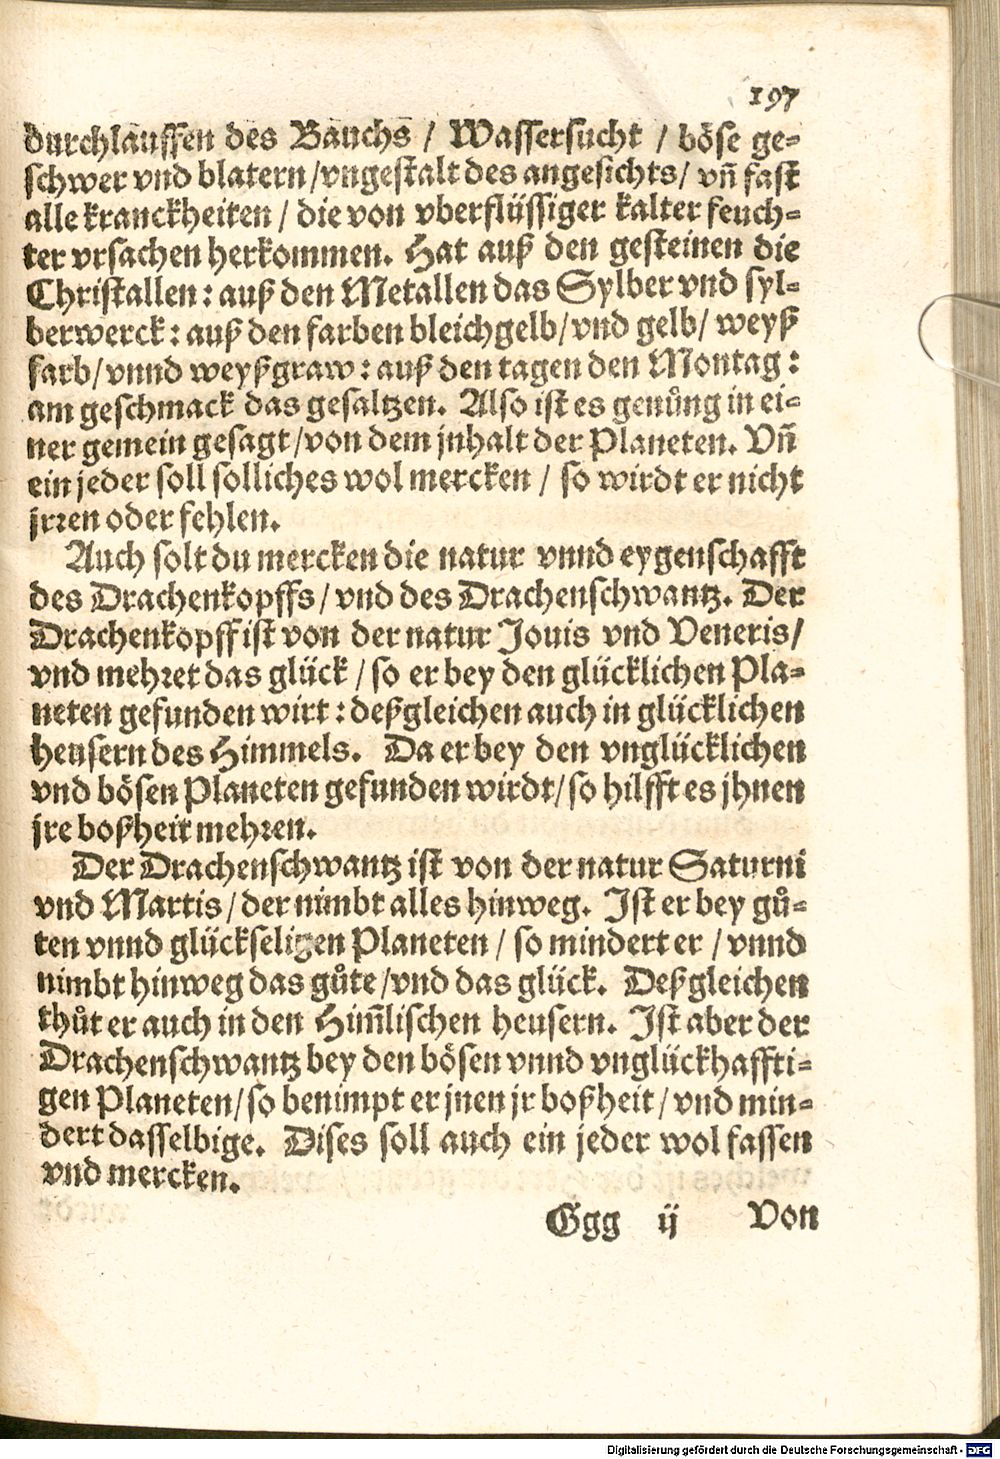 197
durchlauffen des Bauchs / Wassersucht / böse ge-
schwer vnd blatern / vngestalt des angesichts / vn̄ fast
alle kranckheiten / die von vberflüssiger kalter feuch-
ter vrsachen herkommen. Hat auß den gesteinen die
Christallen : auß den Metallen das Sylber vnd syl-
berwerck : auß den farben bleichgelb / vnd gelb / weyß
farb / vnnd weyßgraw : auß den tagen den Montag :
am geschmack das gesaltzen. Also ist es genůng in ei-
ner gemein gesagt / von dem jnhalt der Planeten. Vn̄
ein jeder soll solliches wol mercken / so wirdt er nicht
jrren oder fehlen.
Auch solt du mercken die natur vnnd eygenschafft
des Drachenkopffs / vnd des Drachenschwantz. Der
Drachenkopff ist von der natur Jouis vnd Veneris /
vnd mehret das glück / so er bey den glücklichen Pla-
neten gefunden wirt : deßgleichen auch in glücklichen
heusern des Himmels. Da er bey den vnglücklichen
vnd bösen Planeten gefunden wirdt / so hilfft es jhnen
jre boßheit mehren.
Der Drachenschwantz ist von der natur Saturni
vnd Martis / der nimbt alles hinweg. Ist er bey gů-
ten vnnd glückseligen Planeten / so mindert er / vnnd
nimbt hinweg das gůte / vnd das glück. Deßgleichen
thůt er auch in den Him̄lischen heusern. Ist aber der
Drachenschwantz bey den bösen vnnd vnglückhaffti-
gen Planeten / so benimpt er jnen jr boßheit / vnd min-
dert dasselbige. Dises soll auch ein jeder wol fassen
vnd mercken.
Ggg ij Von
Digitalisierung gefördert durch die Deutsche Forschungsgemeinschaft - DFG